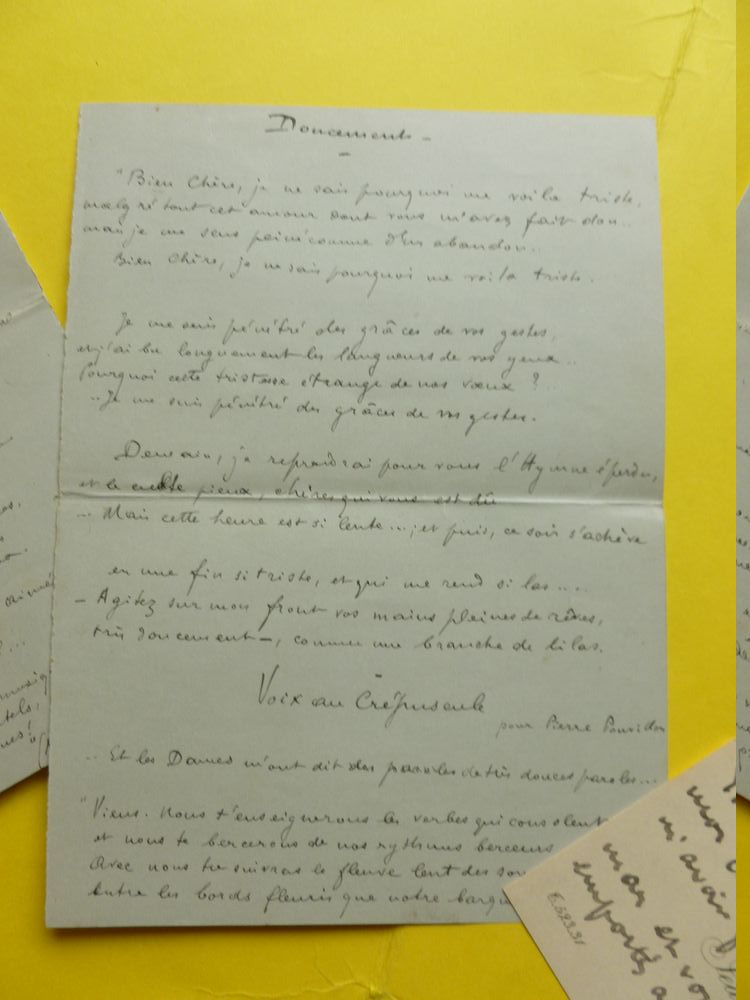 Doucement –
"Bien Chère, je ne sais pourquoi me voilà triste,
malgré tout cet amour dont vous m'avez fait don...
mais je me sens peiné comme d'un abandon..
Bien Chère, je ne sais pourquoi me voilà triste.
Je me suis pénétré des grâces de vos gestes,
et j'ai bu longuement les langueurs de vos yeux..
Pourquoi cette tristesse étrange de nos vœux ?..
..Je me suis pénétré des grâces de vos gestes.
Demain, je reprendrai pour vous l'Hymne éperdu,
et le culte pieux, chère, qui vous est dû
... Mais cette heure est si lente...; et puis, ce soir s'achève
en une fin si triste, et qui me rend si las....
– Agitez sur mon front vos mains pleines de rêves,
très doucement –, comme une branche de lilas.
Voix au Crépuscule
pour Pierre Pouvillon
.. Et les Dames m'ont dit des paroles de très douces paroles...
"Viens. Nous t'enseignerons les verbes qui consolent
et nous te bercerons de nos rythmes berceurs
Avec nous tu suivras le fleuve lent des
entre les bords fleuris que notre
aimé
mon
m'avais
man et
emportés
E.523.31